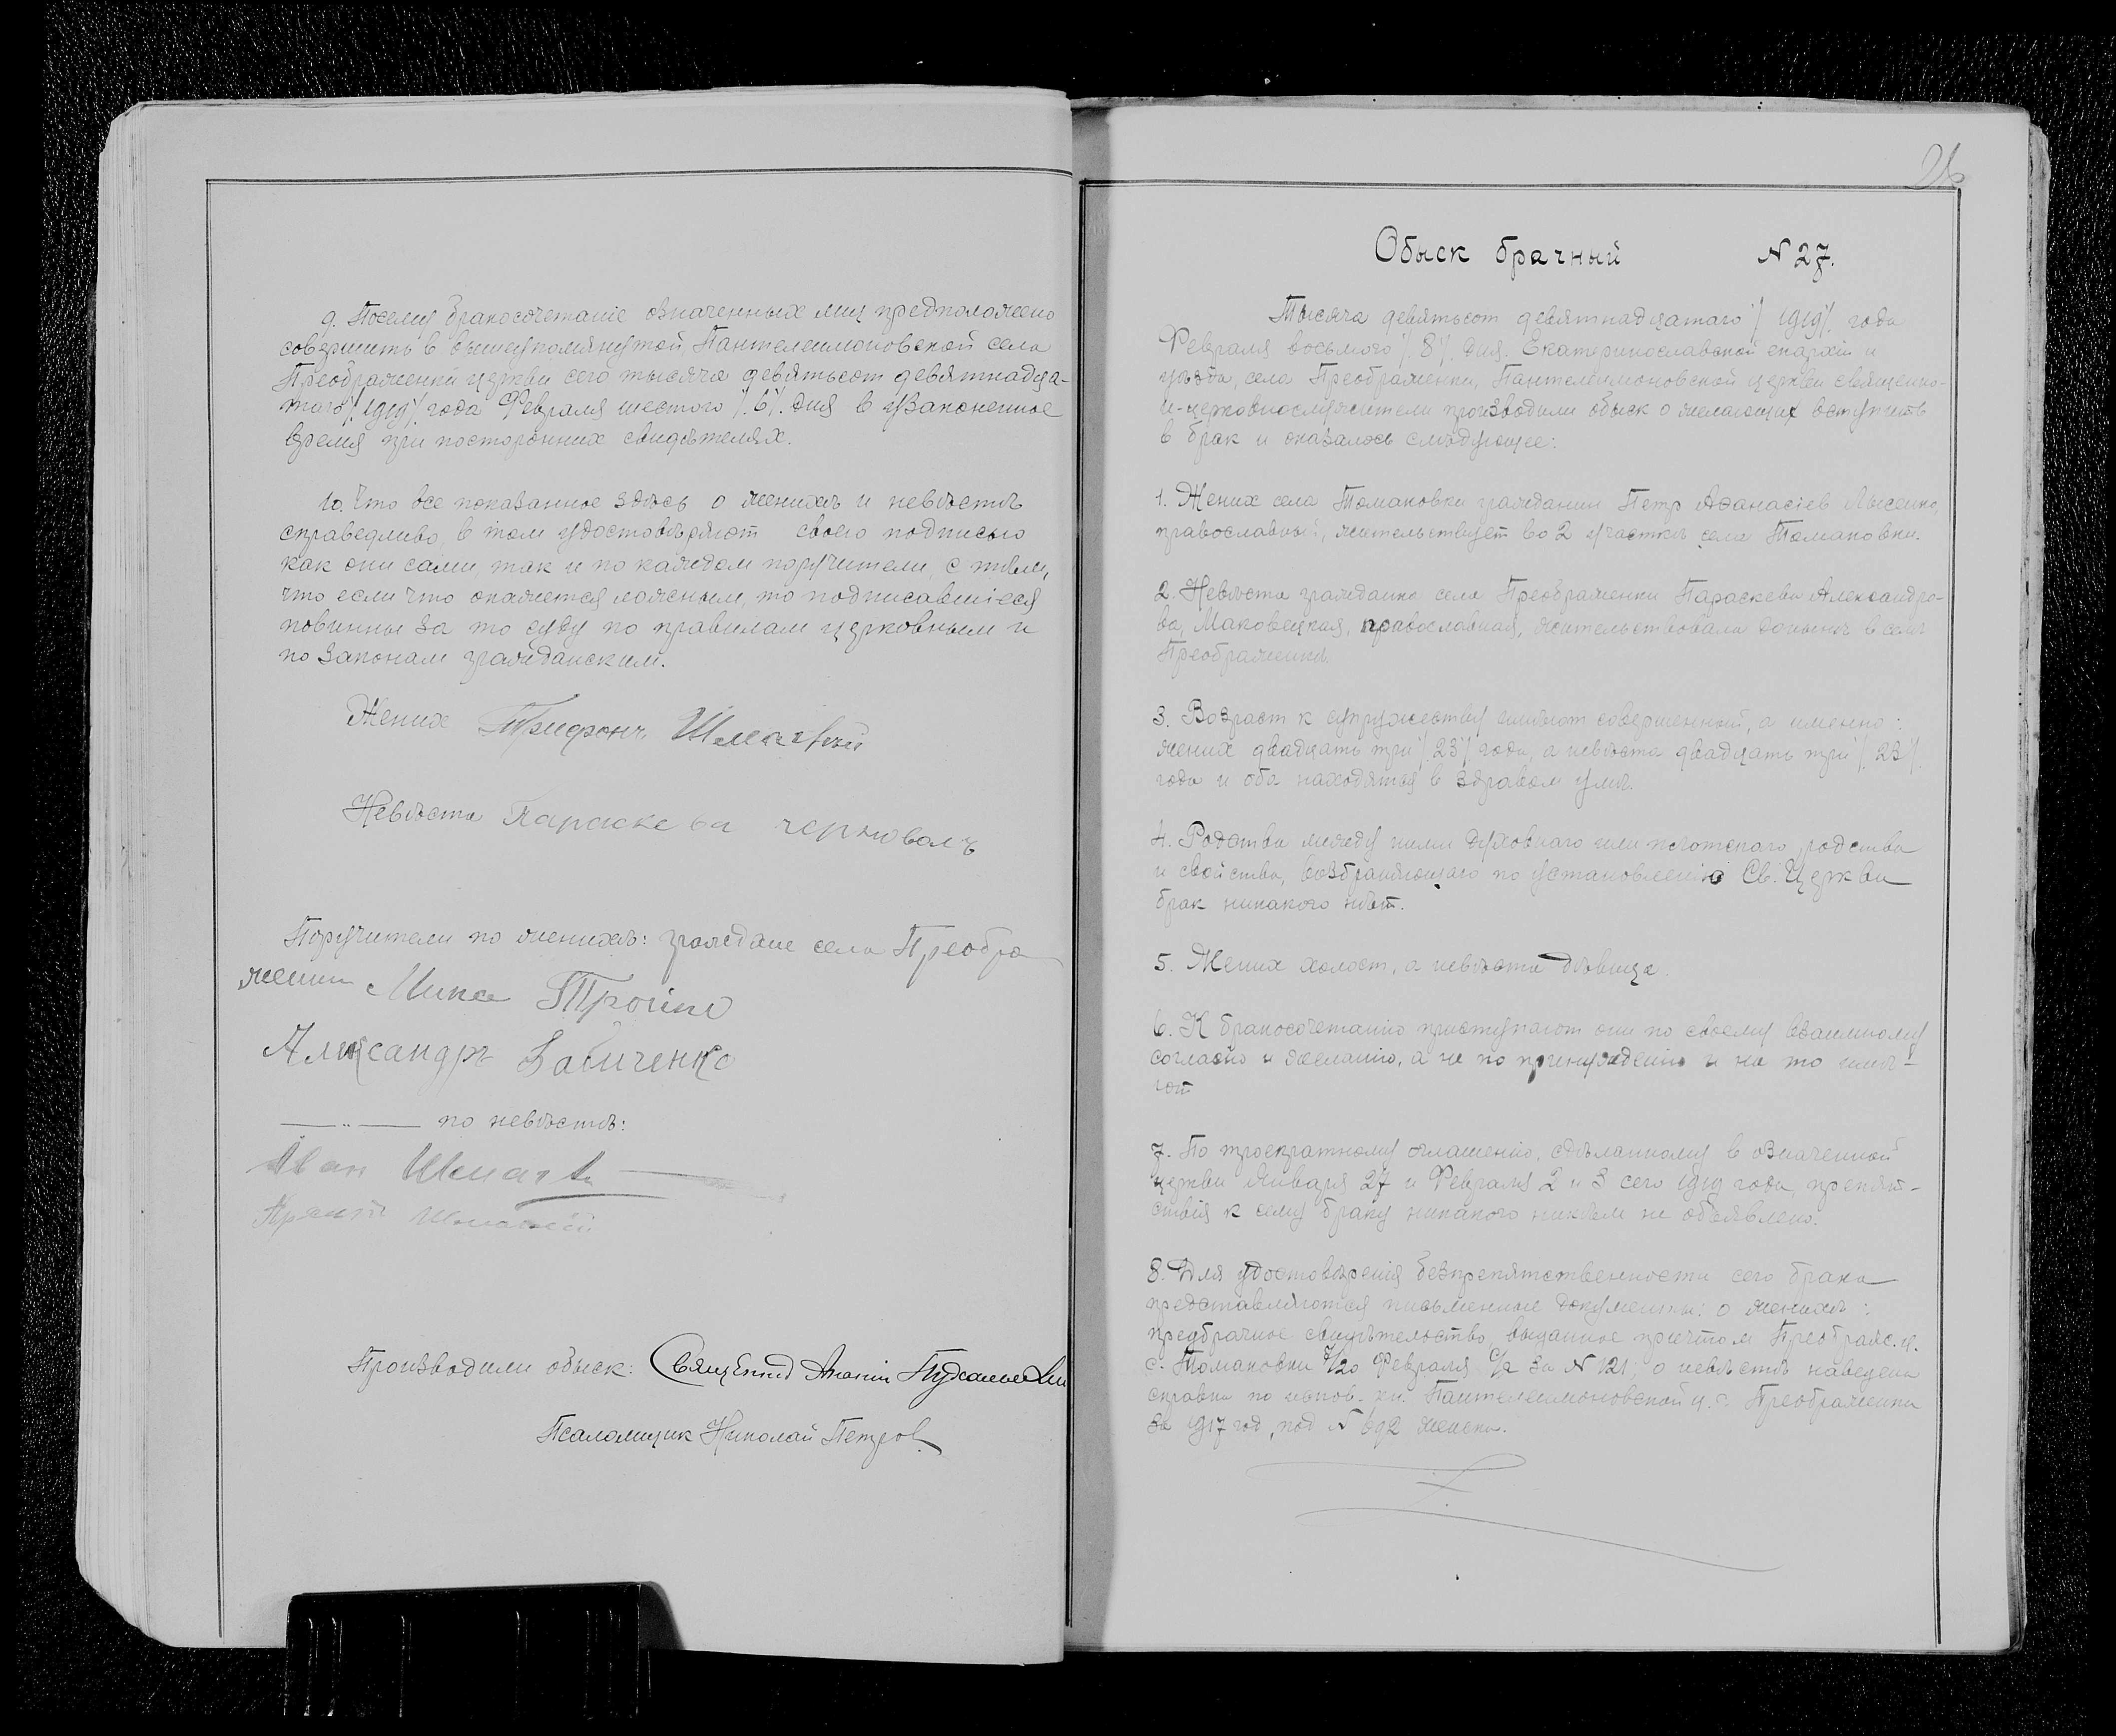 9. Посему бракосочетаніе означенных лиц предположено
совершить в вышеупомянутой Пантелеимоновской села
Преображенки церкви сего тысяча девятьсот девятнадца-
таго /1919/ года Февраля шестого /6/ дня в узаконенное
время при посторонних свидѣтелях.
10. Что все показанное здѣсь о женихѣ и невѣстѣ
справедливо, в том удостовѣряют своею подписью
как они сами, так и по каждом поручители, с тѣм,
что если что окажется ложным, то подписавшіеся
повинны за то суду по правилам церковным и
по законам гражданским.
Жених Трифонъ
Невѣста Параскева
Поручители по женихѣ: граждане села Преобра
женки
Александръ
—"— по невѣстѣ:
Иван
Производили обыск: Священник
Псаломщик Николай Петров
26
Обыск брачный N 27.
Тысяча девятьсот девятнадцатаго /1919/ года
Февраля восьмого /8/ дня. Екатеринославской епархіи и
уѣзда, села Преображенки, Пантелеимоновской церкви священно-
и-церковнослужители производили обыск о желающих вступить
в брак и оказалось слѣдующее:
1. Жених села Томаковки гражданин Петр Афанасіев Лысенко,
православный, жительствует во 2 участкѣ села Томаковки.
2. Невѣста гражданка села Преображенки Параскева Александро-
ва Маковецкая, православная, жительствовала донынѣ в селѣ
Преображенкѣ.
3. Возраст к супружеству имѣют совершенный, а именно:
жених двадцать три /23/ года, а невѣста двадцать три /23/
года и оба находятся в здравом умѣ.
4. Родства между ними духовнаго или плотскаго родства
и свойства, возбраняющаго по установленію Св. Церкви
брак никакого нѣт.
5. Жених холост, а невѣста дѣвица.
6. К бракосочетанію приступают они по своему взаимному
согласію и желанію, а не по принужденію и на то имѣ-
ют
7. По троекратному оглашенію, сдѣланному в означенной
церкви Января 27 и Февраля 2 и 3 сего 1919 года, препят-
ствія к сему браку никакого никѣм не объявлено.
8. Для удостовѣренія безпрепятственности сего брака
представляются письменные документы: о женихѣ:
предбрачное свидѣтельство, выданное причтом Преображ. ц.
с. Томаковки 7/20 Февраля с/г за N 121; о невѣстѣ наведена
справка по испов. кн. Пантелеимоновской ц. с. Преображенки
за 1917 год, под N 692 женска.